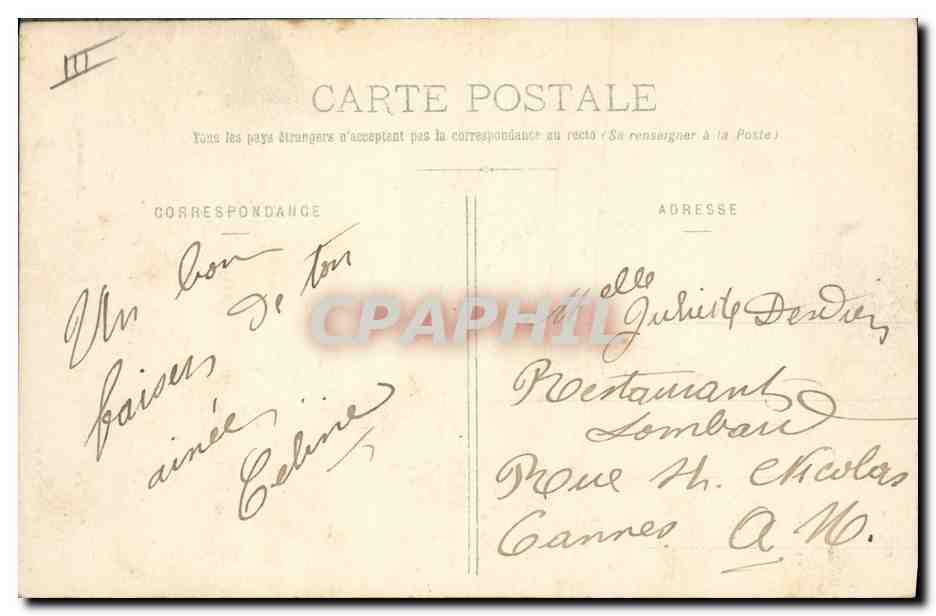 III
CARTE POSTALE
Tous les pays étrangers n'acceptent pas la correspondance au recto (Se renseigner à la Poste)
CORRESPONDANCE
Un bon
baiser de ton
ainée
Céline
ADRESSE
Melle Juliette
Restaurant
Lombard
Rue St. Nicolas
Cannes A M.
CPAPHIL